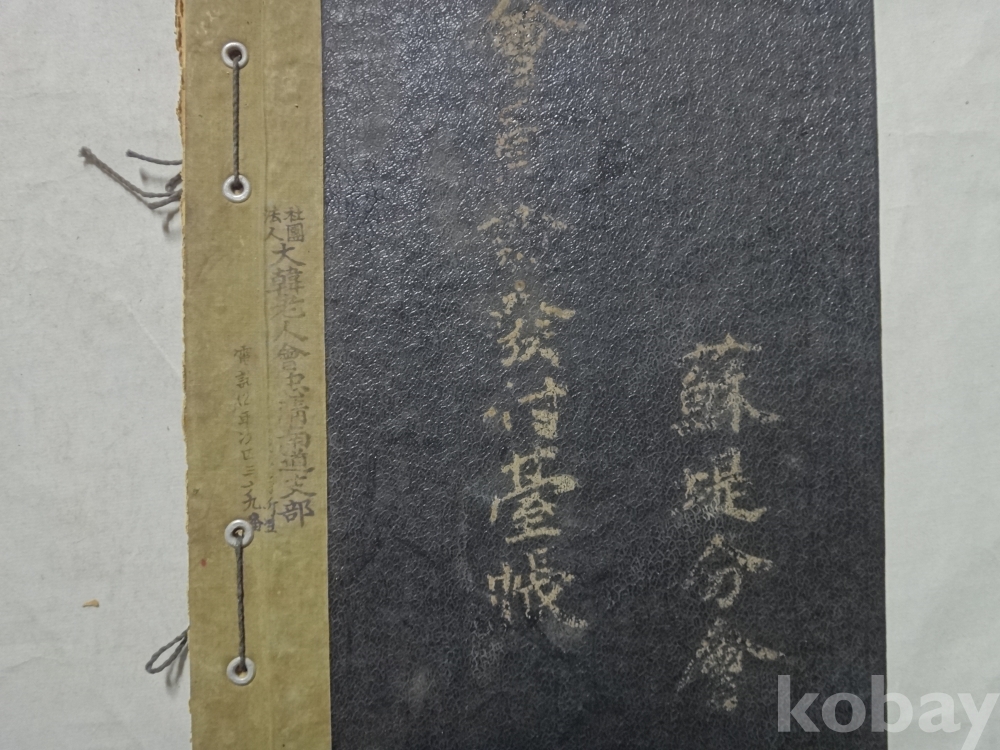 會員證發付臺帳
蘇堤分會
社團
法人
大韓老人會忠淸南道支部
kobay